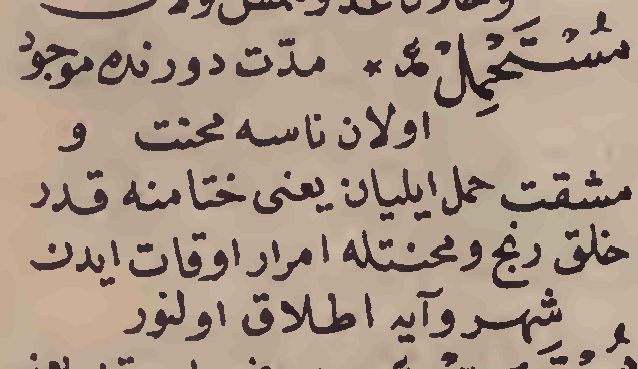 مُسْتَحْمِلْ * مدّت دورنده موجود
اولان ناسه محنت و
مشقت حمل ايليان يعنى ختامنه قدر
خلق رنج و محنتله امرار اوقات ايدن
شهر و آيه اطلاق اولنور